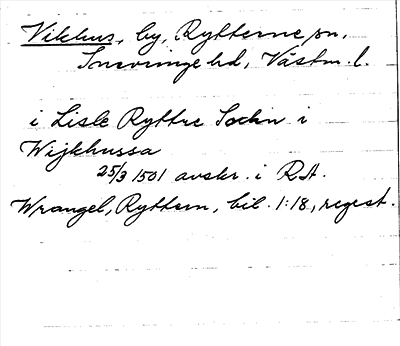 Vikhus, by, Rytterne sn,
Snevringe hd, Västm. l.
i Lisle Ryttre Sochn i
Wijkhussa
25/3 1501 avskr. i RA.
Wrangel, Ryttern, bil. 1:18, regest.